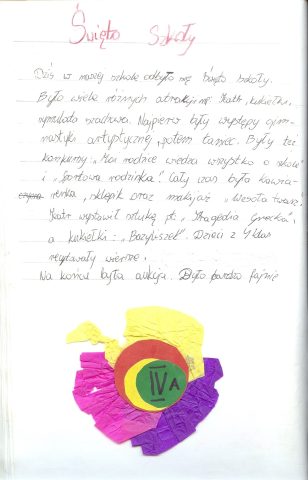 Święto Szkoły
Dziś w naszej szkole odbyło się święto szkoły.
Było wiele różnych atrakcji np. teatr, kukiełki,
symultana szachowa. Najpierw były występy gim-
nastyki artystycznej, potem taniec. Były też
konkursy: „Moi rodzice wiedzą wszystko o szkole"
i „Sportowa rodzinka". Cały czas była kawia-
renka, sklepik oraz makijaż „Wesoła twarz".
Teatr wystawił sztukę pt. „Tragedia grecka",
a kukiełki: „Bazyliszek". Dzieci z 4 klas
recytowały wiersze.
Na końcu była aukcja. Było bardzo fajnie
IV A